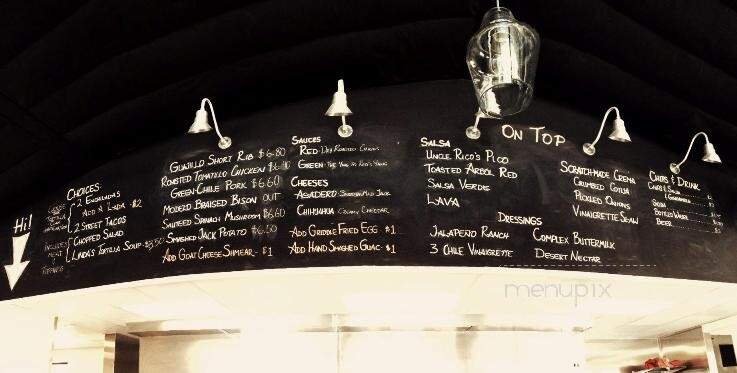 Hi!
CHOICES:
2 ENHALADAS
ADD A LADA - $2
2 STREET TACOS
CHOPPED SALAD
LINDA'S TORTILLA SOUP - $3.50
INCLUDES
GUAJILLO SHORT RIB $6.80
ROASTED TOMATILLO CHICKEN
GREEN CHILE PORK $6.60
MODELO BRAISED BISON OUT
SAUTEED SPINACH MUSHROOM $6.60
SMASHED JACK POTATO $6.50
ADD GOAT CHEESE SHMEAR - $1
SAUCES
RED - DRY ROASTED CHILES
GREEN -
CHEESES
ASADERO -
CHIHUAHUA
ADD GRIDDLE FRIED EGG - $1
ADD HAND SMASHED GUAC - $1
ON TOP
SALSA
UNCLE RICO'S PICO
TOASTED ARBOL RED
SALSA VERDE
LAVA
SCRATCHMADE CREMA
CRUMBLED COTIJA
PICKLED ONIONS
VINAIGRETTE SLAW
DRESSINGS
JALAPEÑO RANCH
3 CHILE VINAIGRETTE
COMPLEX BUTTERMILK
DESERT NECTAR
CHIPS & DRINK
CHIPS & SALSA
SODA
BOTTLED WATER
BEER
menupix